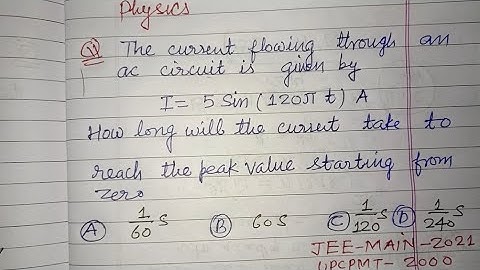 Physics
Q The current flowing through an
ac circuit is given by
I = 5 Sin (120π t) A
How long will the current take to
reach the peak value starting from
zero
A 1/60 s B 60 s C 1/120 s D 1/240 s
JEE-MAIN-2021
UPCPMT-2000